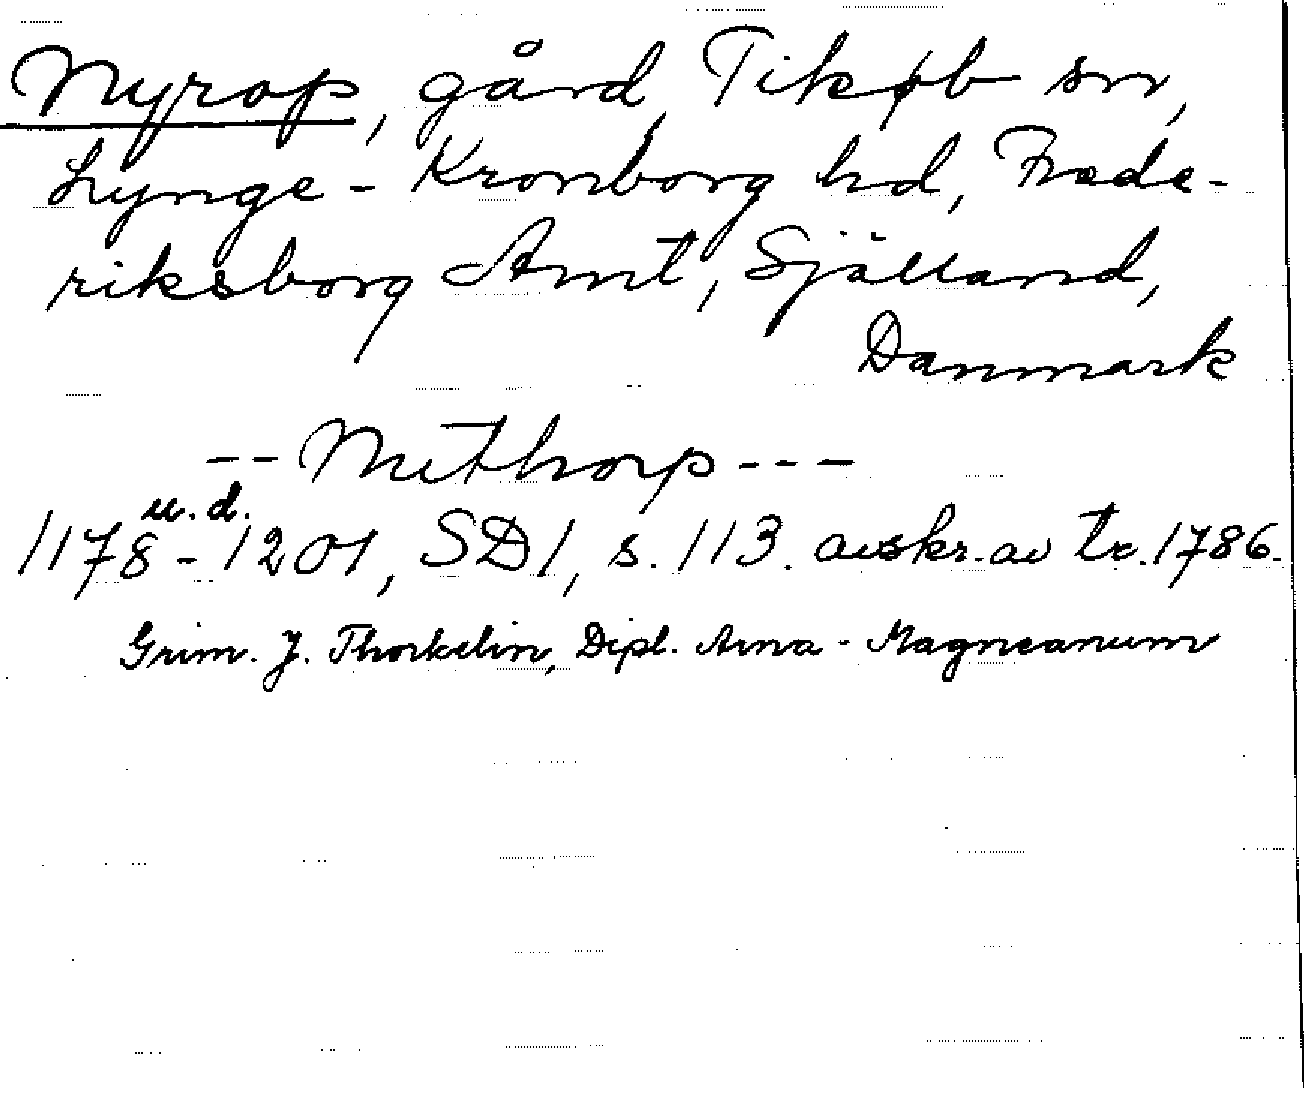 Nyrop, gård, Tikøb sn,
Lynge - Kronborg hd, Frede-
riksborg Amt, Själland,
Danmark
-- Nithorp ---
u. d.
1178 - 1201, SD1, s. 113. avskr. av tr. 1786.
Grim. J. Thorkelin, Dipl. Arna - Magneanum